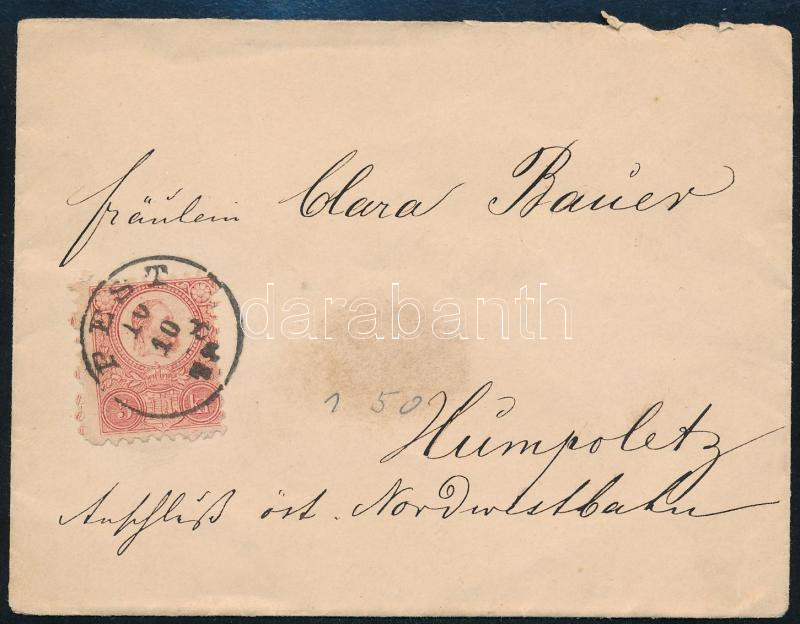 Fräulein Clara Bauer
PEST
10
10
5 kr
darabanth
1 50
Humpoletz
Anschluß öst. Nordwestbahn